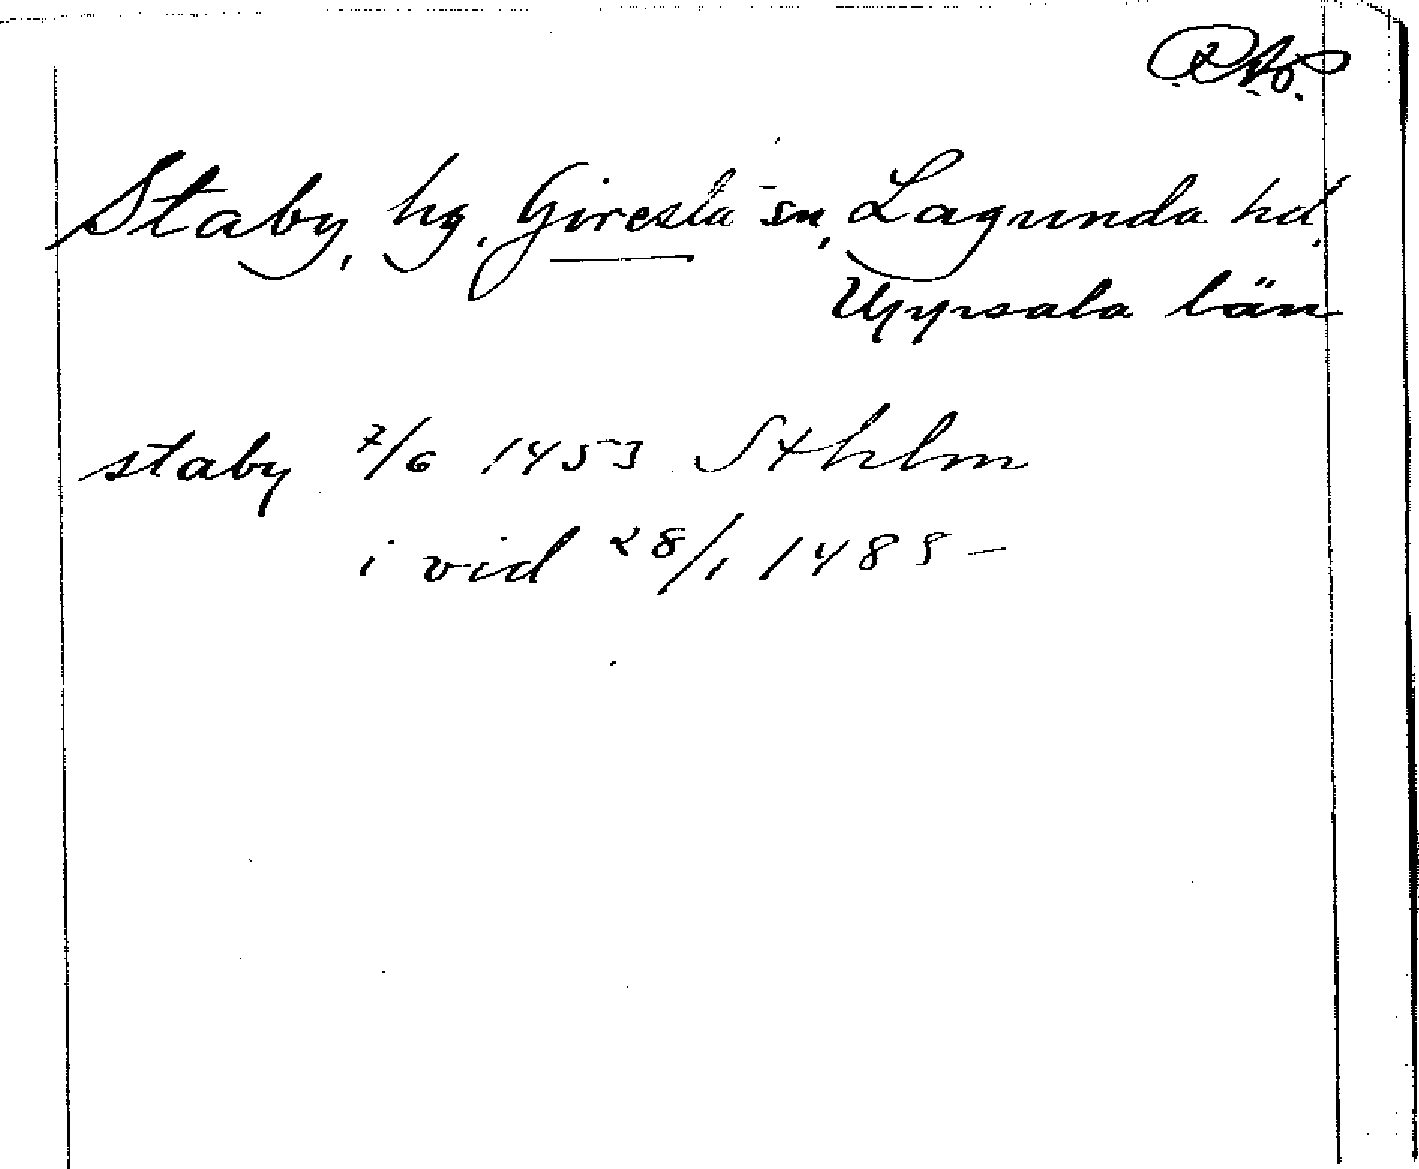 Staby, hg. Giresta sn, Lagunda hd,
Uppsala län
staby 7/6 1453 Sthlm
i vid 28/1 1485